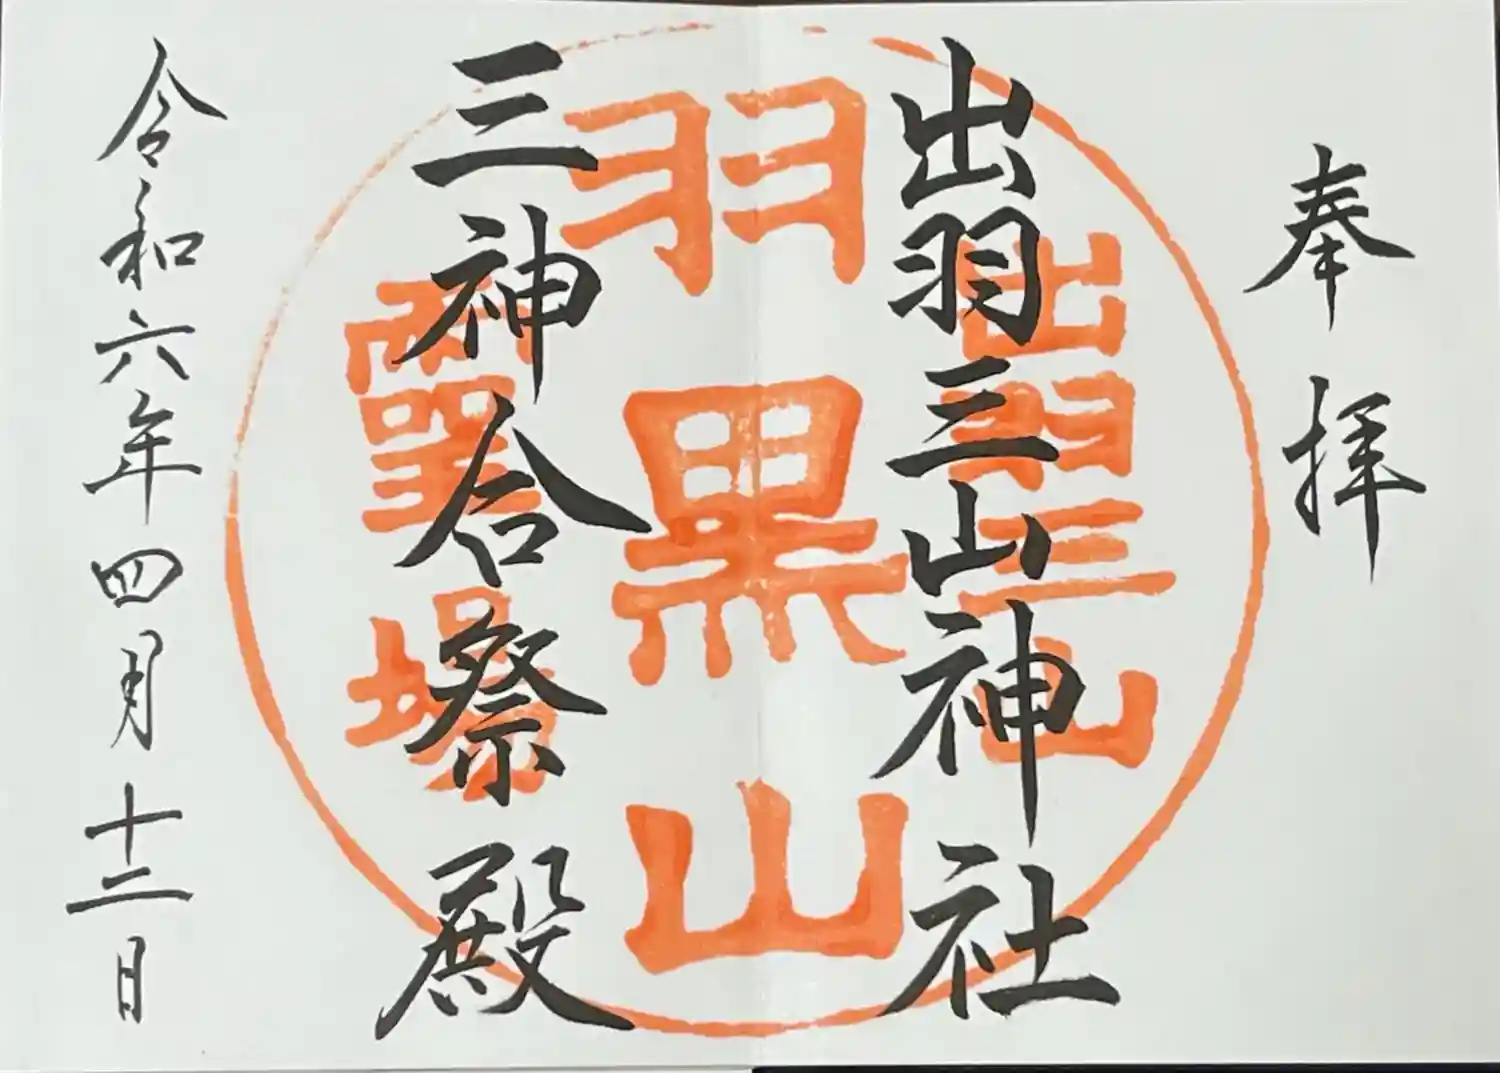 奉拝
出羽三山神社
出羽三山
羽黒山
霊場
三神合祭殿
令和六年四月十二日